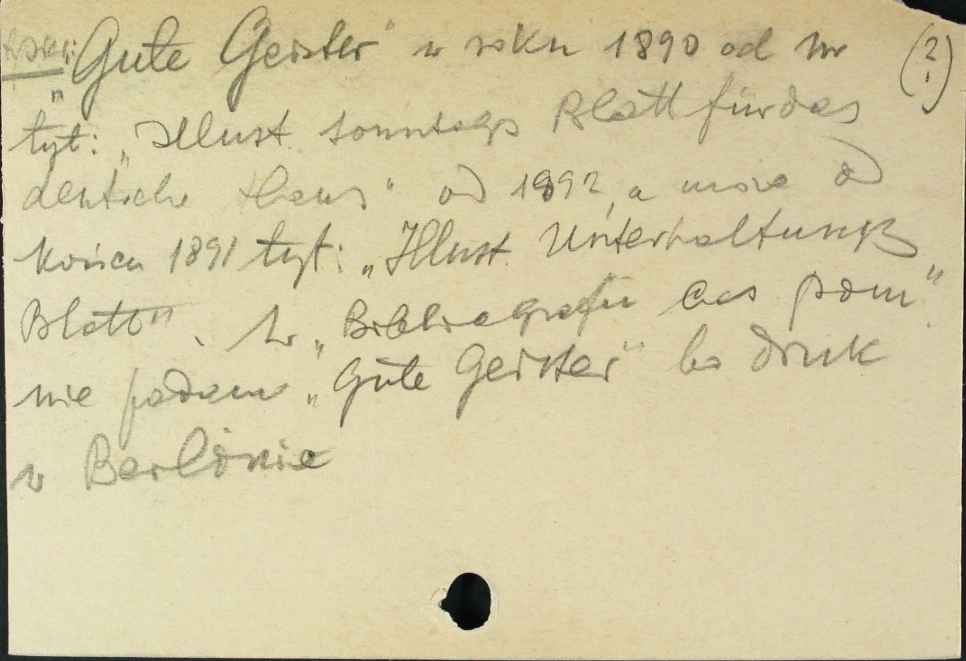 "Gute Geister" w roku 1890 od nr (?)
tyt: „Illust. Sonntags Blatt für das
deutsche Haus" od 1892, a może od
końca 1891 tyt: „Illust. Unterhaltungs
Blatt". W „Bibliografii czas pom."
nie podano „Gute Geister" bo druk
w Berlinie